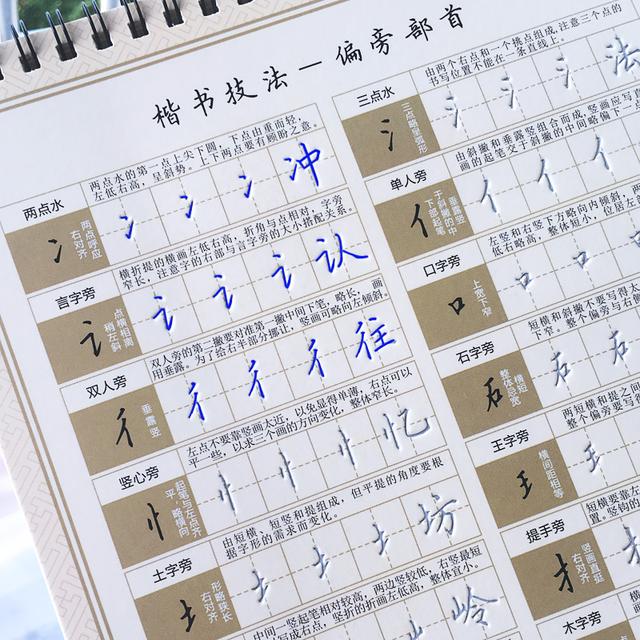 楷书技法—偏旁部首
两点水
两点水的第一点上尖下圆,下点由重而轻,
左低右高,呈斜势。上下两点要有顾盼之意。
冫
两点呼应
右对齐
冫 冫 冫 冲
言字旁
横折提的横画左低右高,折角与点相对,字旁
窄长。注意字的右部与言字旁的大小搭配关系。
讠
点横相离
稍左斜
讠 讠 讠 认
双人旁
双人旁的第二撇要对准第一撇中间下笔,略长,画
用垂露。为了给右半部分挪让,竖画可略向左倾斜。
彳
垂露竖
彳 彳 彳 往
竖心旁
左点不要靠竖画太近,以免显得单薄,右点可以
平一些,以求三个画的方向变化,整体窄长。
忄
起笔与左点齐
平,略横向
忄 忄 忄 忆
土字旁
由短横、短竖和提组成,但平提的角度要根
据字形的需求而变化。
土
形略狭长
右对齐
土 土 土 坊
中间一竖起笔相对较高,两边竖较低,右竖最短
写成右点,竖折的折画左低右高,整体宜小。
岭
三点水
由两个右点和一个挑点组成,注意三个点的
书写位置不能在一条直线上。
氵
三点略呈弧形
氵 氵 氵 法
单人旁
由斜撇和垂露竖组合而成,竖画应写直
画的起笔交于斜撇的中间略偏下
亻
垂露竖
于斜撇的中
下部起笔
亻 亻 亻
口字旁
左竖和右竖下方略向内倾斜,
低右略高,整体短小,位居左
口
上宽下窄
口 口
石字旁
短横和斜撇不要写得太
下窄。整个偏旁与右
石
横短
整体忌宽
石 石
王字旁
两短横和提之间
整个偏旁要写得
王
横间距相等
王
提手旁
短横要靠左
置。竖钩的
扌
竖画直挺
右对齐
木字旁